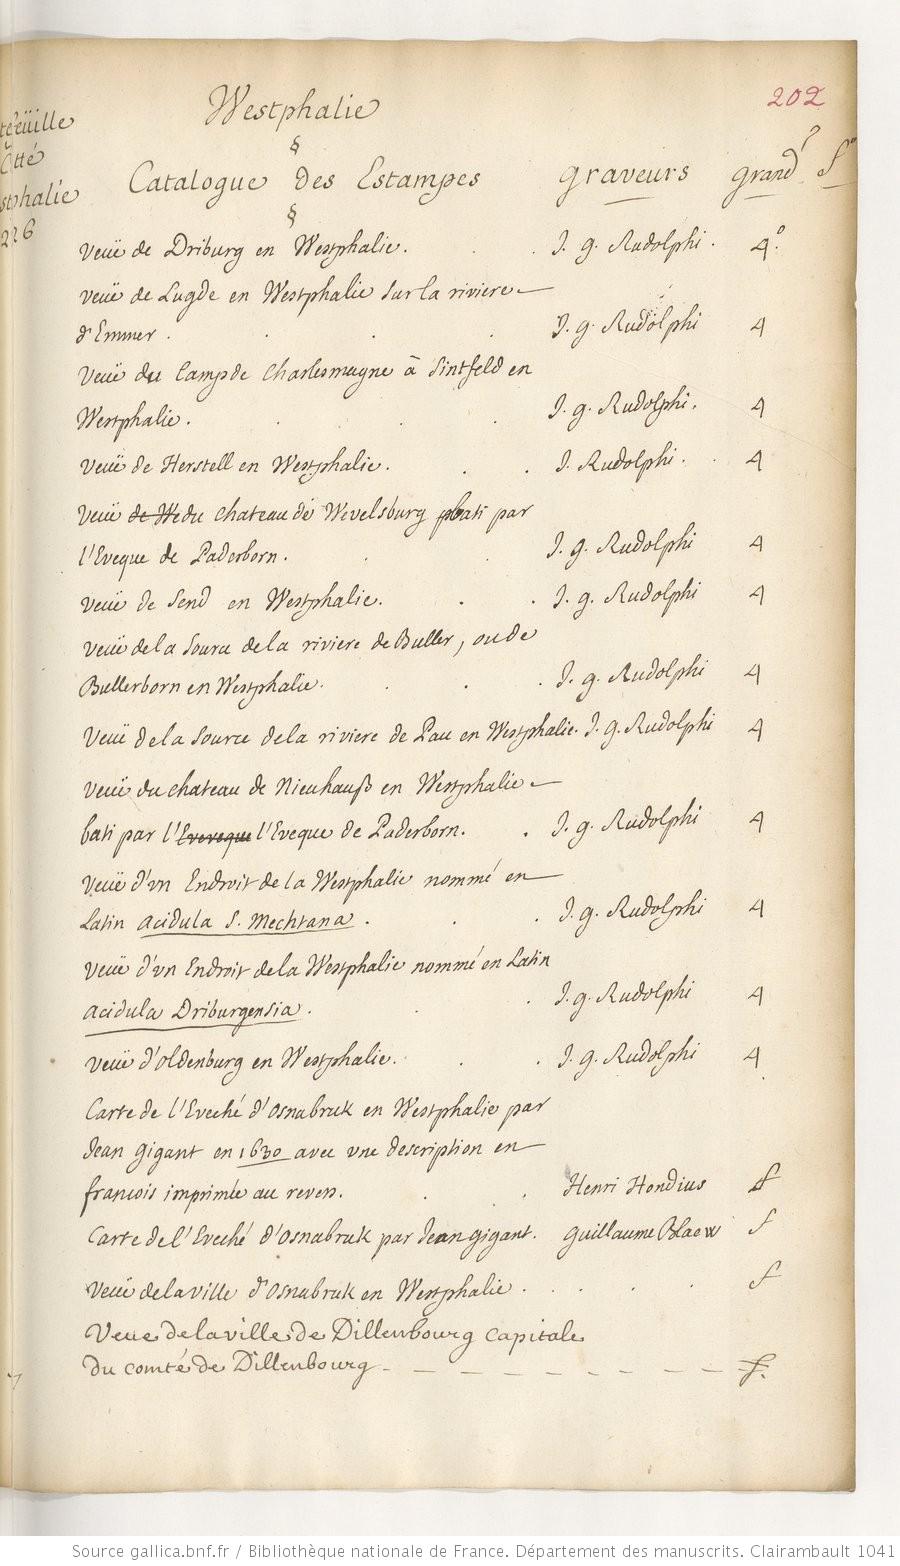 202
tefeüille
Cotté
stphalie
226
Westphalie
§
Catalogue des Estampes graveurs grand^r f°
§
Veuë de Driburg en Westphalie. J. g. Rudolphi. 4°.
Veuë de Lugde en Westphalie sur la riviere
d'Emmer. J. g. Rudolphi 4
Veuë du Camp de Charlesmagne à Sintfeld en
Westphalie. J. g. Rudolphi. 4
Veuë de Herstell en Westphalie. J. Rudolphi. 4
Veuë de We du chateau de Wevelsburg bati par
l'Eveque de Paderborn. J. g. Rudolphi 4
Veuë de Send en Westphalie. J. g. Rudolphi 4
Veuë de la Source de la riviere de Buller, ou de
Bullerborn en Westphalie. J. g. Rudolphi 4
Veuë de la Source de la riviere de Pau en Westphalie. J. g. Rudolphi 4
Veuë du chateau de Nieuhauß en Westphalie
bati par l'Evereque l'Eveque de Paderborn. J. g. Rudolphi 4
Veuë d'vn Endroit de la Westphalie nommé en
Latin Acidula S. Mechtana. J. g. Rudolphi 4
Veuë d'vn Endroit de la Westphalie nommé en Latin
Acidula Driburgensia. J. g. Rudolphi 4
Veuë d'Oldenburg en Westphalie. J. g. Rudolphi 4
Carte de l'Eveché d'Osnabruk en Westphalie par
Jean gigant en 1630 avec vne description en
francois imprimée au revers. Henri Hondius f
Carte de l'Eveché d'Osnabruk par Jean gigant. guillaume Blaew f
Veuë de la ville d'Osnabruk en Westphalie. f
Veue de la ville de Dillenbourg capitale
du comté de Dillenbourg f.
Source gallica.bnf.fr / Bibliothèque nationale de France. Département des manuscrits. Clairambault 1041